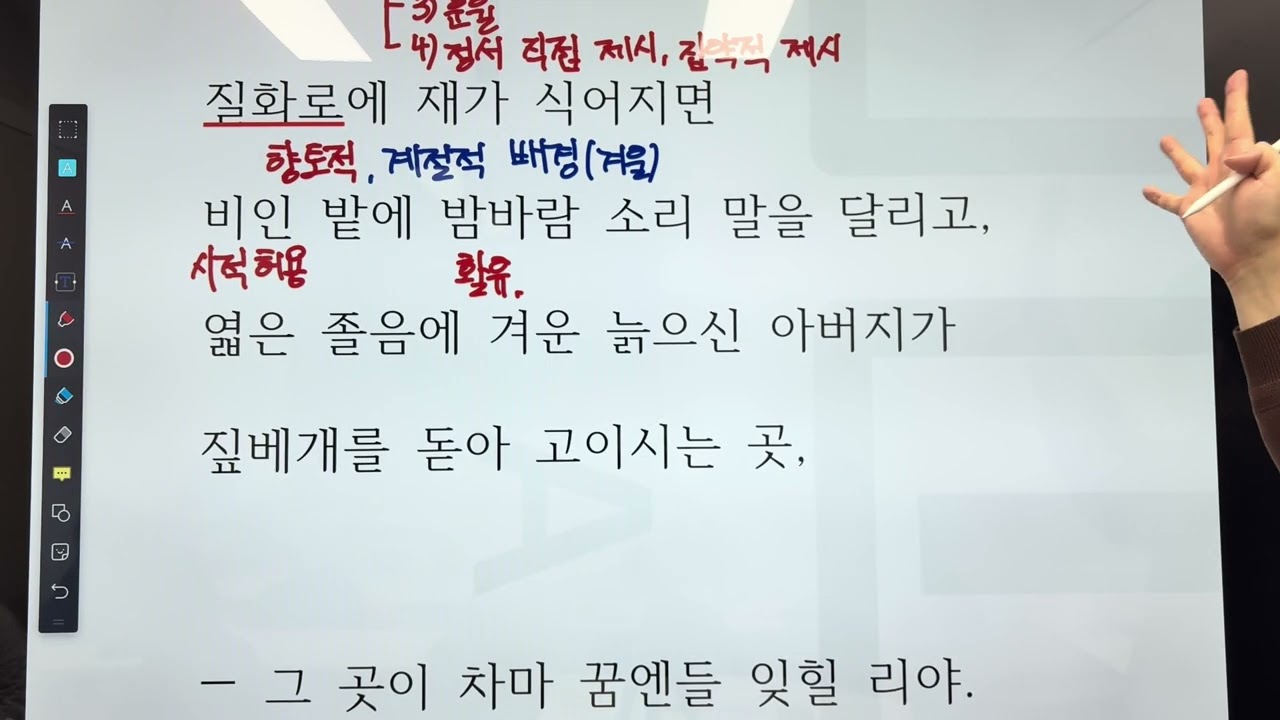 3) 운율
4) 정서 직접 제시, 집약적 제시
질화로에 재가 식어지면
향토적, 계절적 배경(겨울)
비인 밭에 밤바람 소리 말을 달리고,
시적허용 활유.
엷은 졸음에 겨운 늙으신 아버지가
짚베개를 돋아 고이시는 곳,
– 그 곳이 차마 꿈엔들 잊힐 리야.